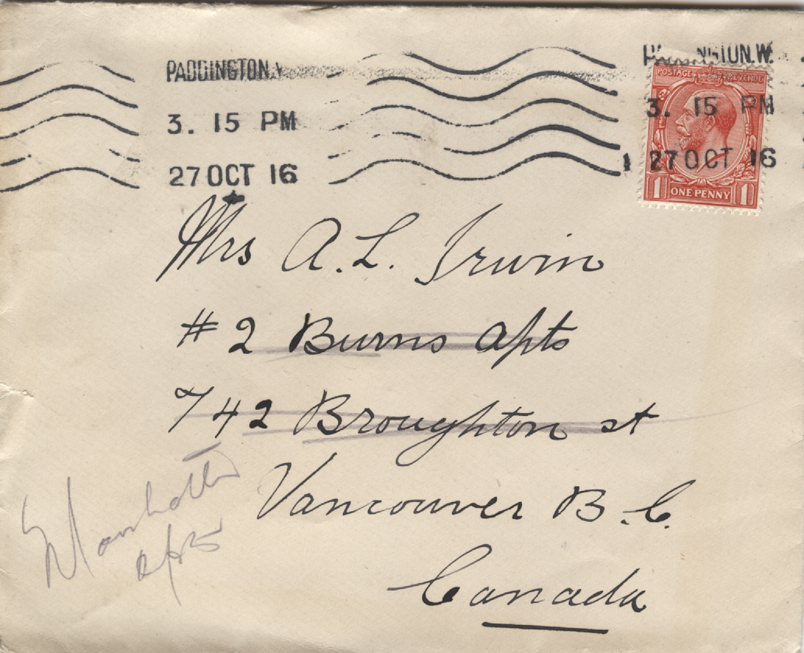 PADDINGTON.W
3. 15 PM
27 OCT 16
PADDINGTON.W.
3. 15 PM
27 OCT 16
POSTAGE REVENUE
1 ONE PENNY 1
Mrs A. L. Irwin
#2 Burns Apts
742 Broughton st
Vancouver B. C.
Canada
Manhattan
apts